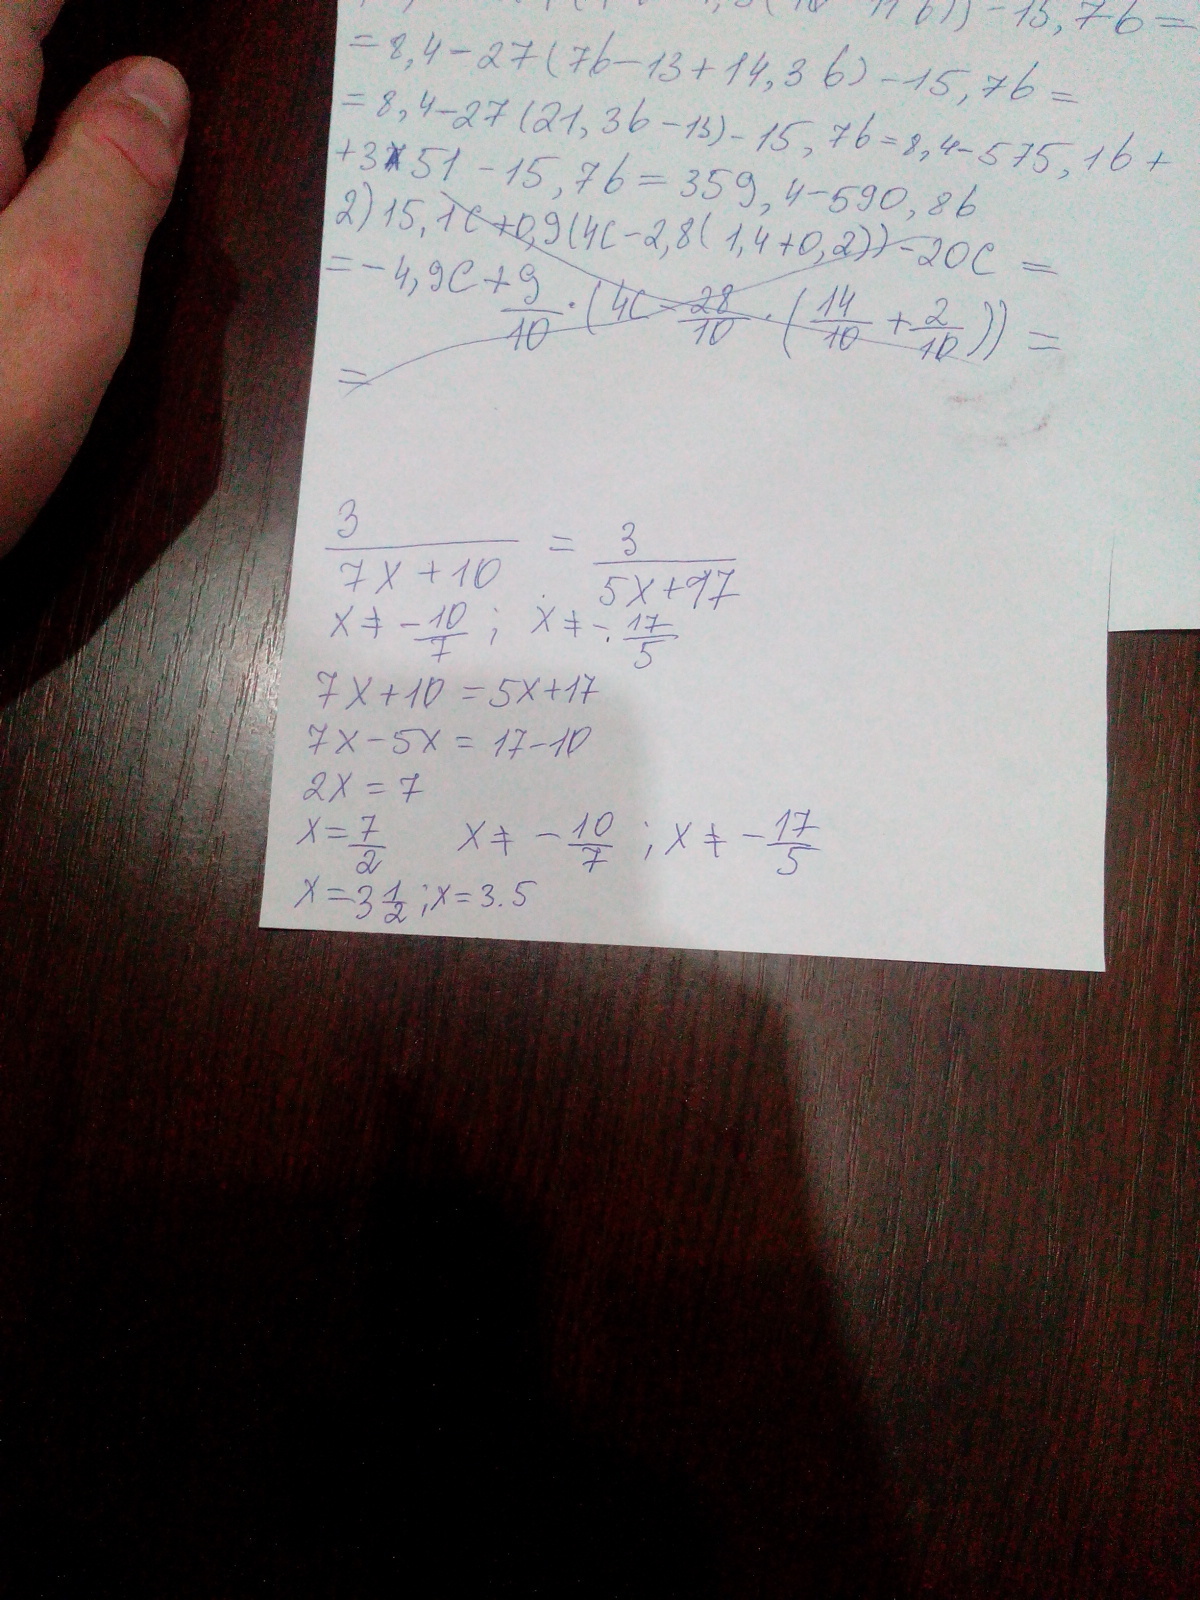 - 15,7b =
= 8,4 - 27 (7b - 13 + 14,3b) - 15,7b =
= 8,4 - 27 (21,3b - 13) - 15,7b = 8,4 - 575,1b +
+ 351 - 15,7b = 359,4 - 590,8b
2) 15,1c + 0,9(4c - 2,8(1,4 + 0,2)) - 20c =
= -4,9c + 9/10 · (4c - 28/10 · (14/10 + 2/10)) =
=
3/(7x + 10) = 3/(5x + 17)
x ≠ -10/7 ; x ≠ -17/5
7x + 10 = 5x + 17
7x - 5x = 17 - 10
2x = 7
x = 7/2 x ≠ -10/7 ; x ≠ -17/5
x = 3 1/2 ; x = 3.5